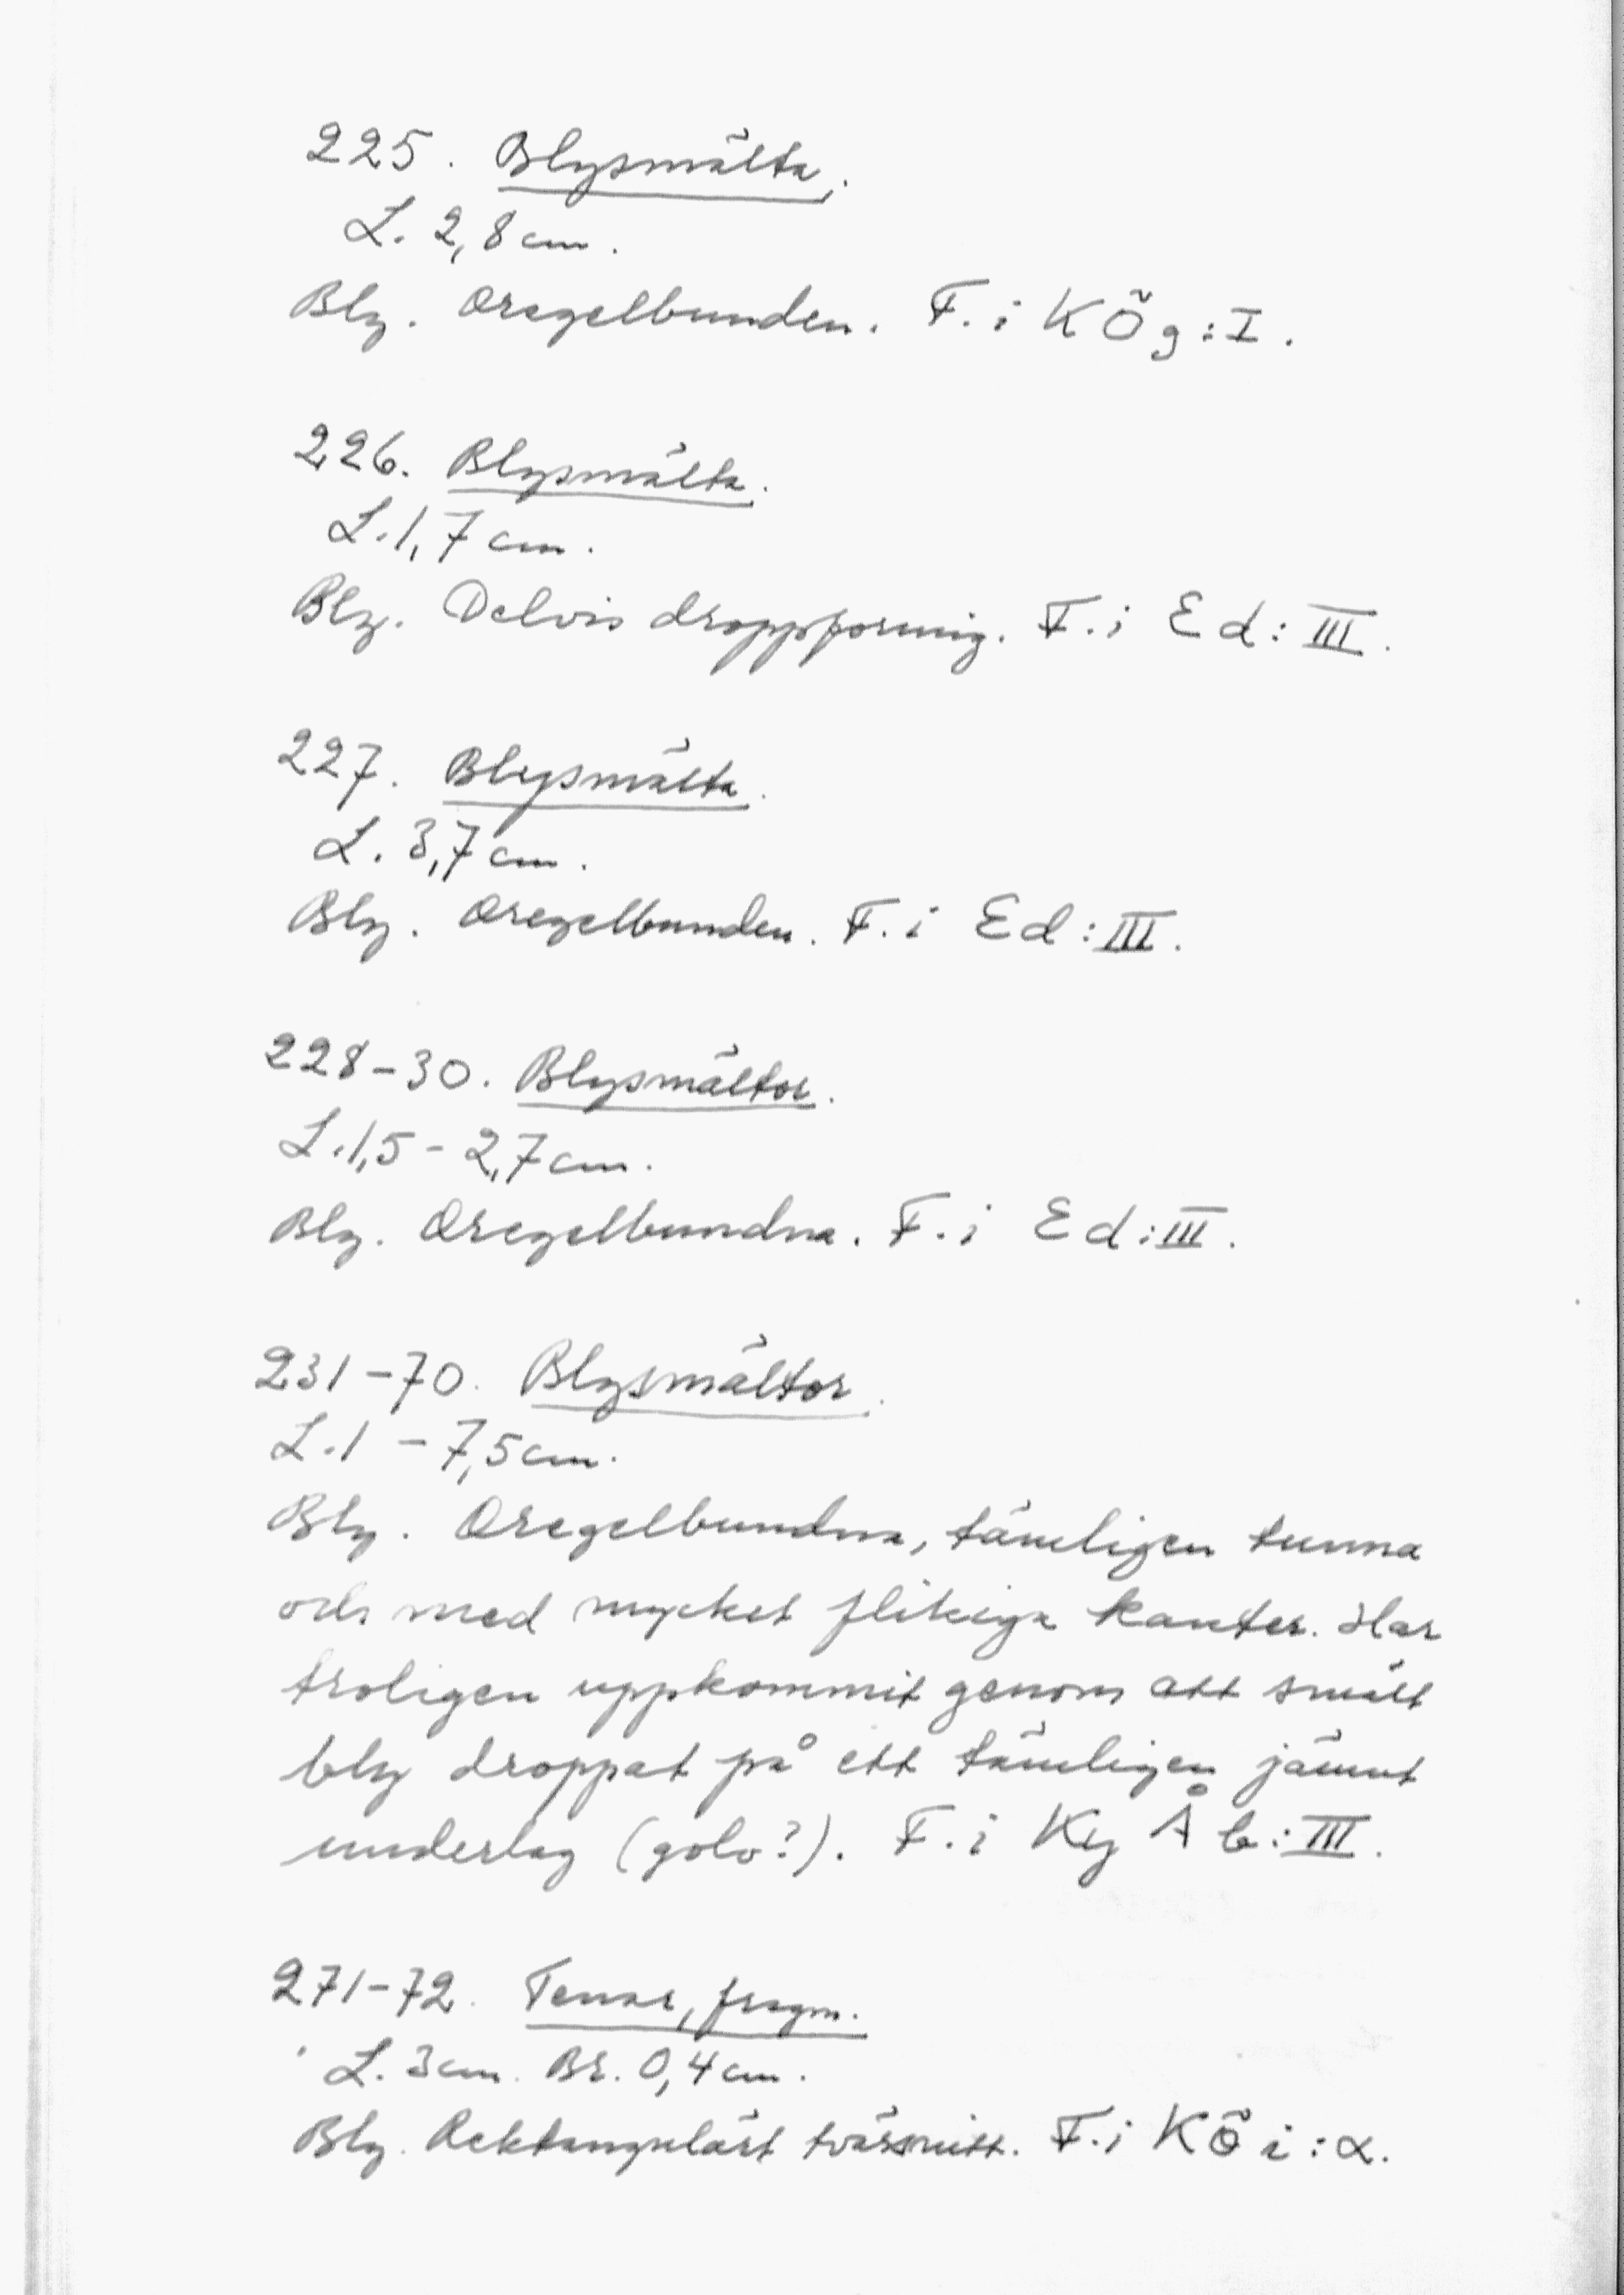 225. Blysmälta.
L. 2,8 cm.
Bly. Oregelbunden. F. i K Ö g : I.
226. Blysmälta.
L. 1,7 cm.
Bly. Delvis droppformig. F. i E d : III.
227. Blysmälta.
L. 3,7 cm.
Bly. Oregelbunden. F. i E d : III.
228-30. Blysmältor.
L. 1,5 - 2,7 cm.
Bly. Oregelbundna. F. i E d : III.
231-70. Blysmältor.
L. 1 - 7,5 cm.
Bly. Oregelbundna, tämligen tunna
och med mycket flikiga kanter. Har
troligen uppkommit genom att smält
bly droppat på ett tämligen jämnt
underlag (golv?). F. i Ky Å b : III.
271-72. Tenar, fragm.
L. 3 cm. Br. 0,4 cm.
Bly. Rektangulärt tvärsnitt. F. i K Ö i : α.